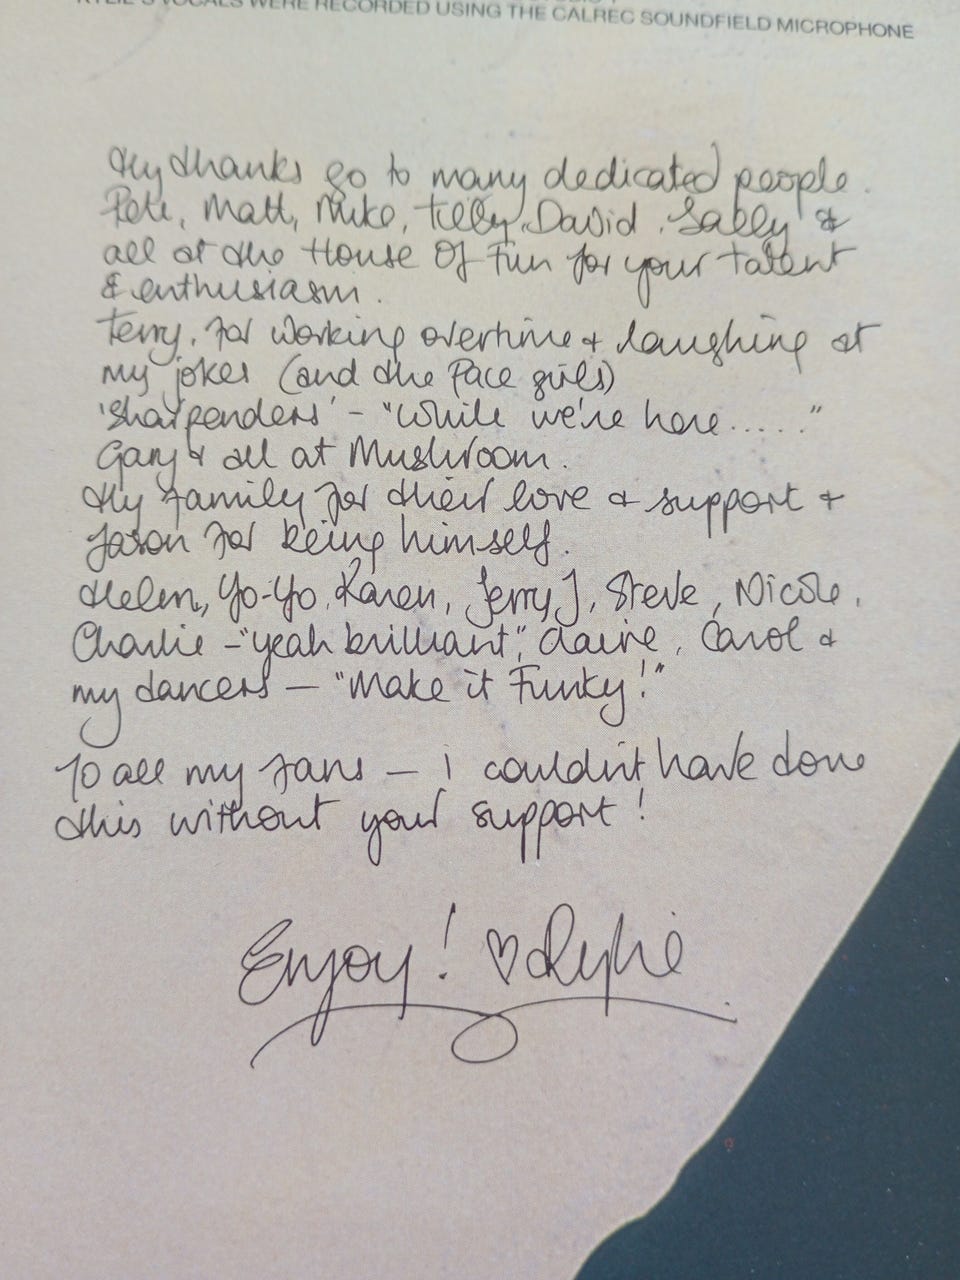 KYLIE'S VOCALS WERE RECORDED USING THE CALREC SOUNDFIELD MICROPHONE
My thanks go to many dedicated people.
Pete, Matt, Mike, Tilly, David, Sally &
all at the House Of Fun for your talent
& enthusiasm.
Terry, for working overtime & laughing at
my jokes (and the Pace girls)
'Sharpenders' - "While we're here....."
Gary & all at Mushroom.
My family for their love & support &
Jason for being himself.
Helen, Yo-Yo, Karen, Jerry J, Steve, Nicole,
Charlie - "yeah brilliant", Claire, Carol &
my dancers - "Make it Funky!"
To all my fans - i couldn't have done
this without your support!
Enjoy! ♡ Kylie